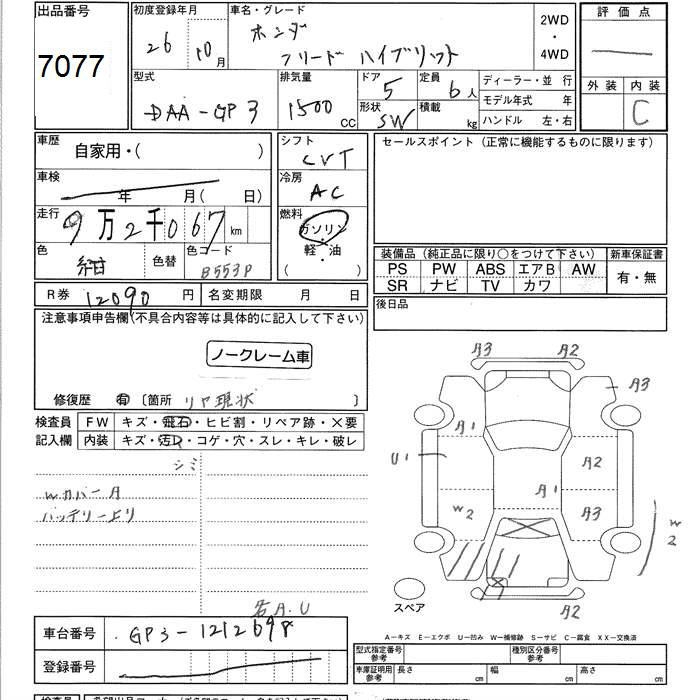 出品番号
7077
初度登録年月
26 年 10 月
車名・グレード
ホンダ
フリード ハイブリット
2WD
・
4WD
評価点
外装 内装
C
型式
DAA-GP3
排気量
1500 CC
ドア
5
形状
SW
定員
6 人
積載
kg
ディーラー・並 行
モデル年式 年
ハンドル 左・右
車歴
自家用・( )
車検
年 月( 日)
走行
9万2千067 km
色
紺
色替
色コード
B553P
シフト
CVT
冷房
AC
燃料
ガソリン
軽・油
( )
セールスポイント (正常に機能するものに限ります)
装備品 (純正品に限り○をつけて下さい)
PS PW ABS エアB AW
SR ナビ TV カワ
新車保証書
有・無
後日品
R券 12090 円
名変期限 月 日
注意事項申告欄(不具合内容等は具体的に記入して下さい)
ノークレーム車
修復歴 有 〔箇所 リヤ現状 〕
検査員
記入欄
FW キズ・飛石・ヒビ割・リペア跡・×要
内装 キズ・汚れ・コゲ・穴・スレ・キレ・破レ
シミ
Wカバー A
バッテリー上り
右A.U
A3 A2
A3
A1
U1
A2
A1
W2
A3
W
2
A2
スペア
A―キズ E―エクボ U―凹み W―補修跡 S―サビ C―腐食 XX―交換済
車台番号
GP3-1212698
登録番号
型式指定番号
参考
種別区分番号
参考
車庫証明用
参考
長さ cm 幅 cm 高さ cm